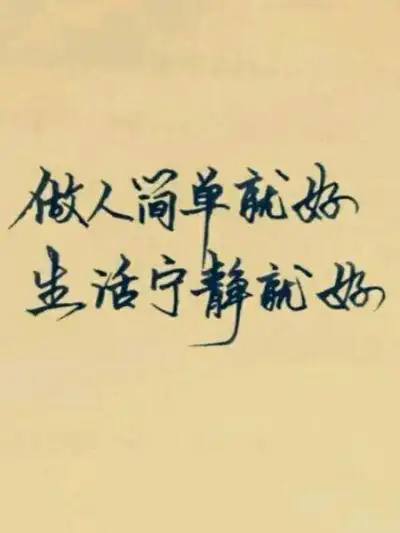 做人简单就好
生活宁静就好